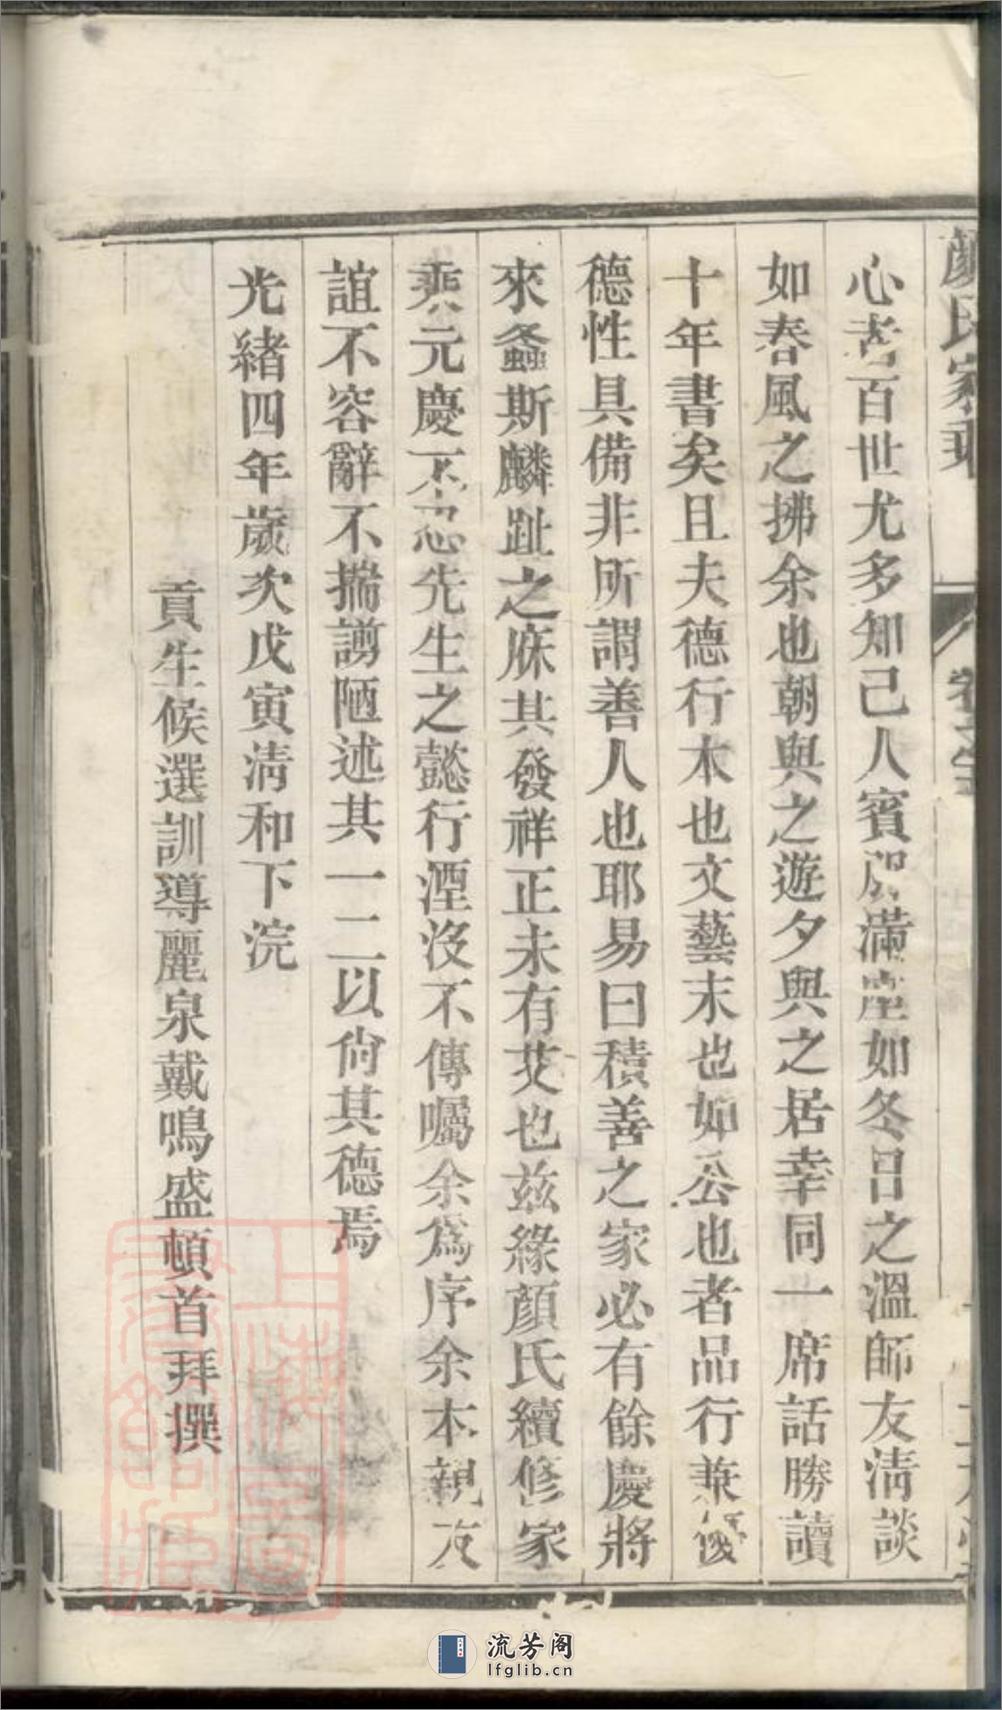 顏氏家乘
卷之宗
心者百世尤多知己人賓朋滿座如冬日之溫師友清談
如春風之拂余也朝與之遊夕與之居幸同一席話勝讀
十年書矣且夫德行本也文藝末也如公也者品行兼優
德性具備非所謂善人也耶易曰積善之家必有餘慶將
來螽斯麟趾之庥其發祥正未有艾也兹緣顏氏續修家
乘元慶不忍先生之懿行湮沒不傳囑余爲序余本親友
誼不容辭不揣謭陋述其一二以尙其德焉
光緒四年歲次戊寅清和下浣
貢生候選訓導麗泉戴鳴盛頓首拜撰
上海圖書館藏
流芳阁
lfglib.cn